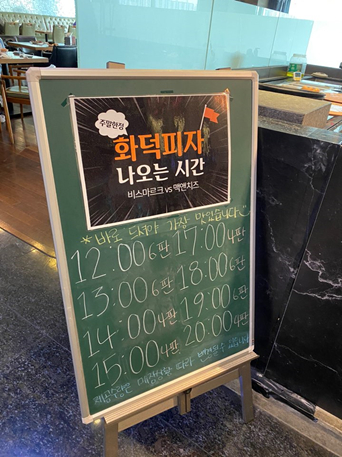 주말한정
화덕피자
나오는 시간
비스마르크 vs 맥앤치즈
*바로 드셔야 가장 맛있습니다
12:00 6판 17:00 4판
13:00 6판 18:00 6판
14:00 4판 19:00 6판
15:00 4판 20:00 4판
제공량은 따라